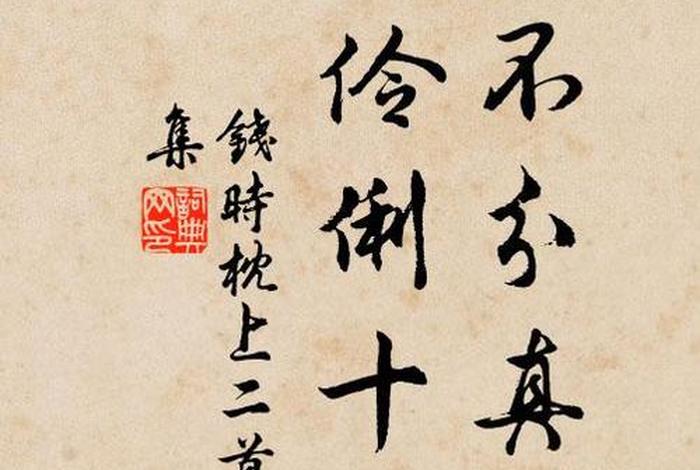 不分真
伶俐十
錢時枕上二首
集
詞典網印